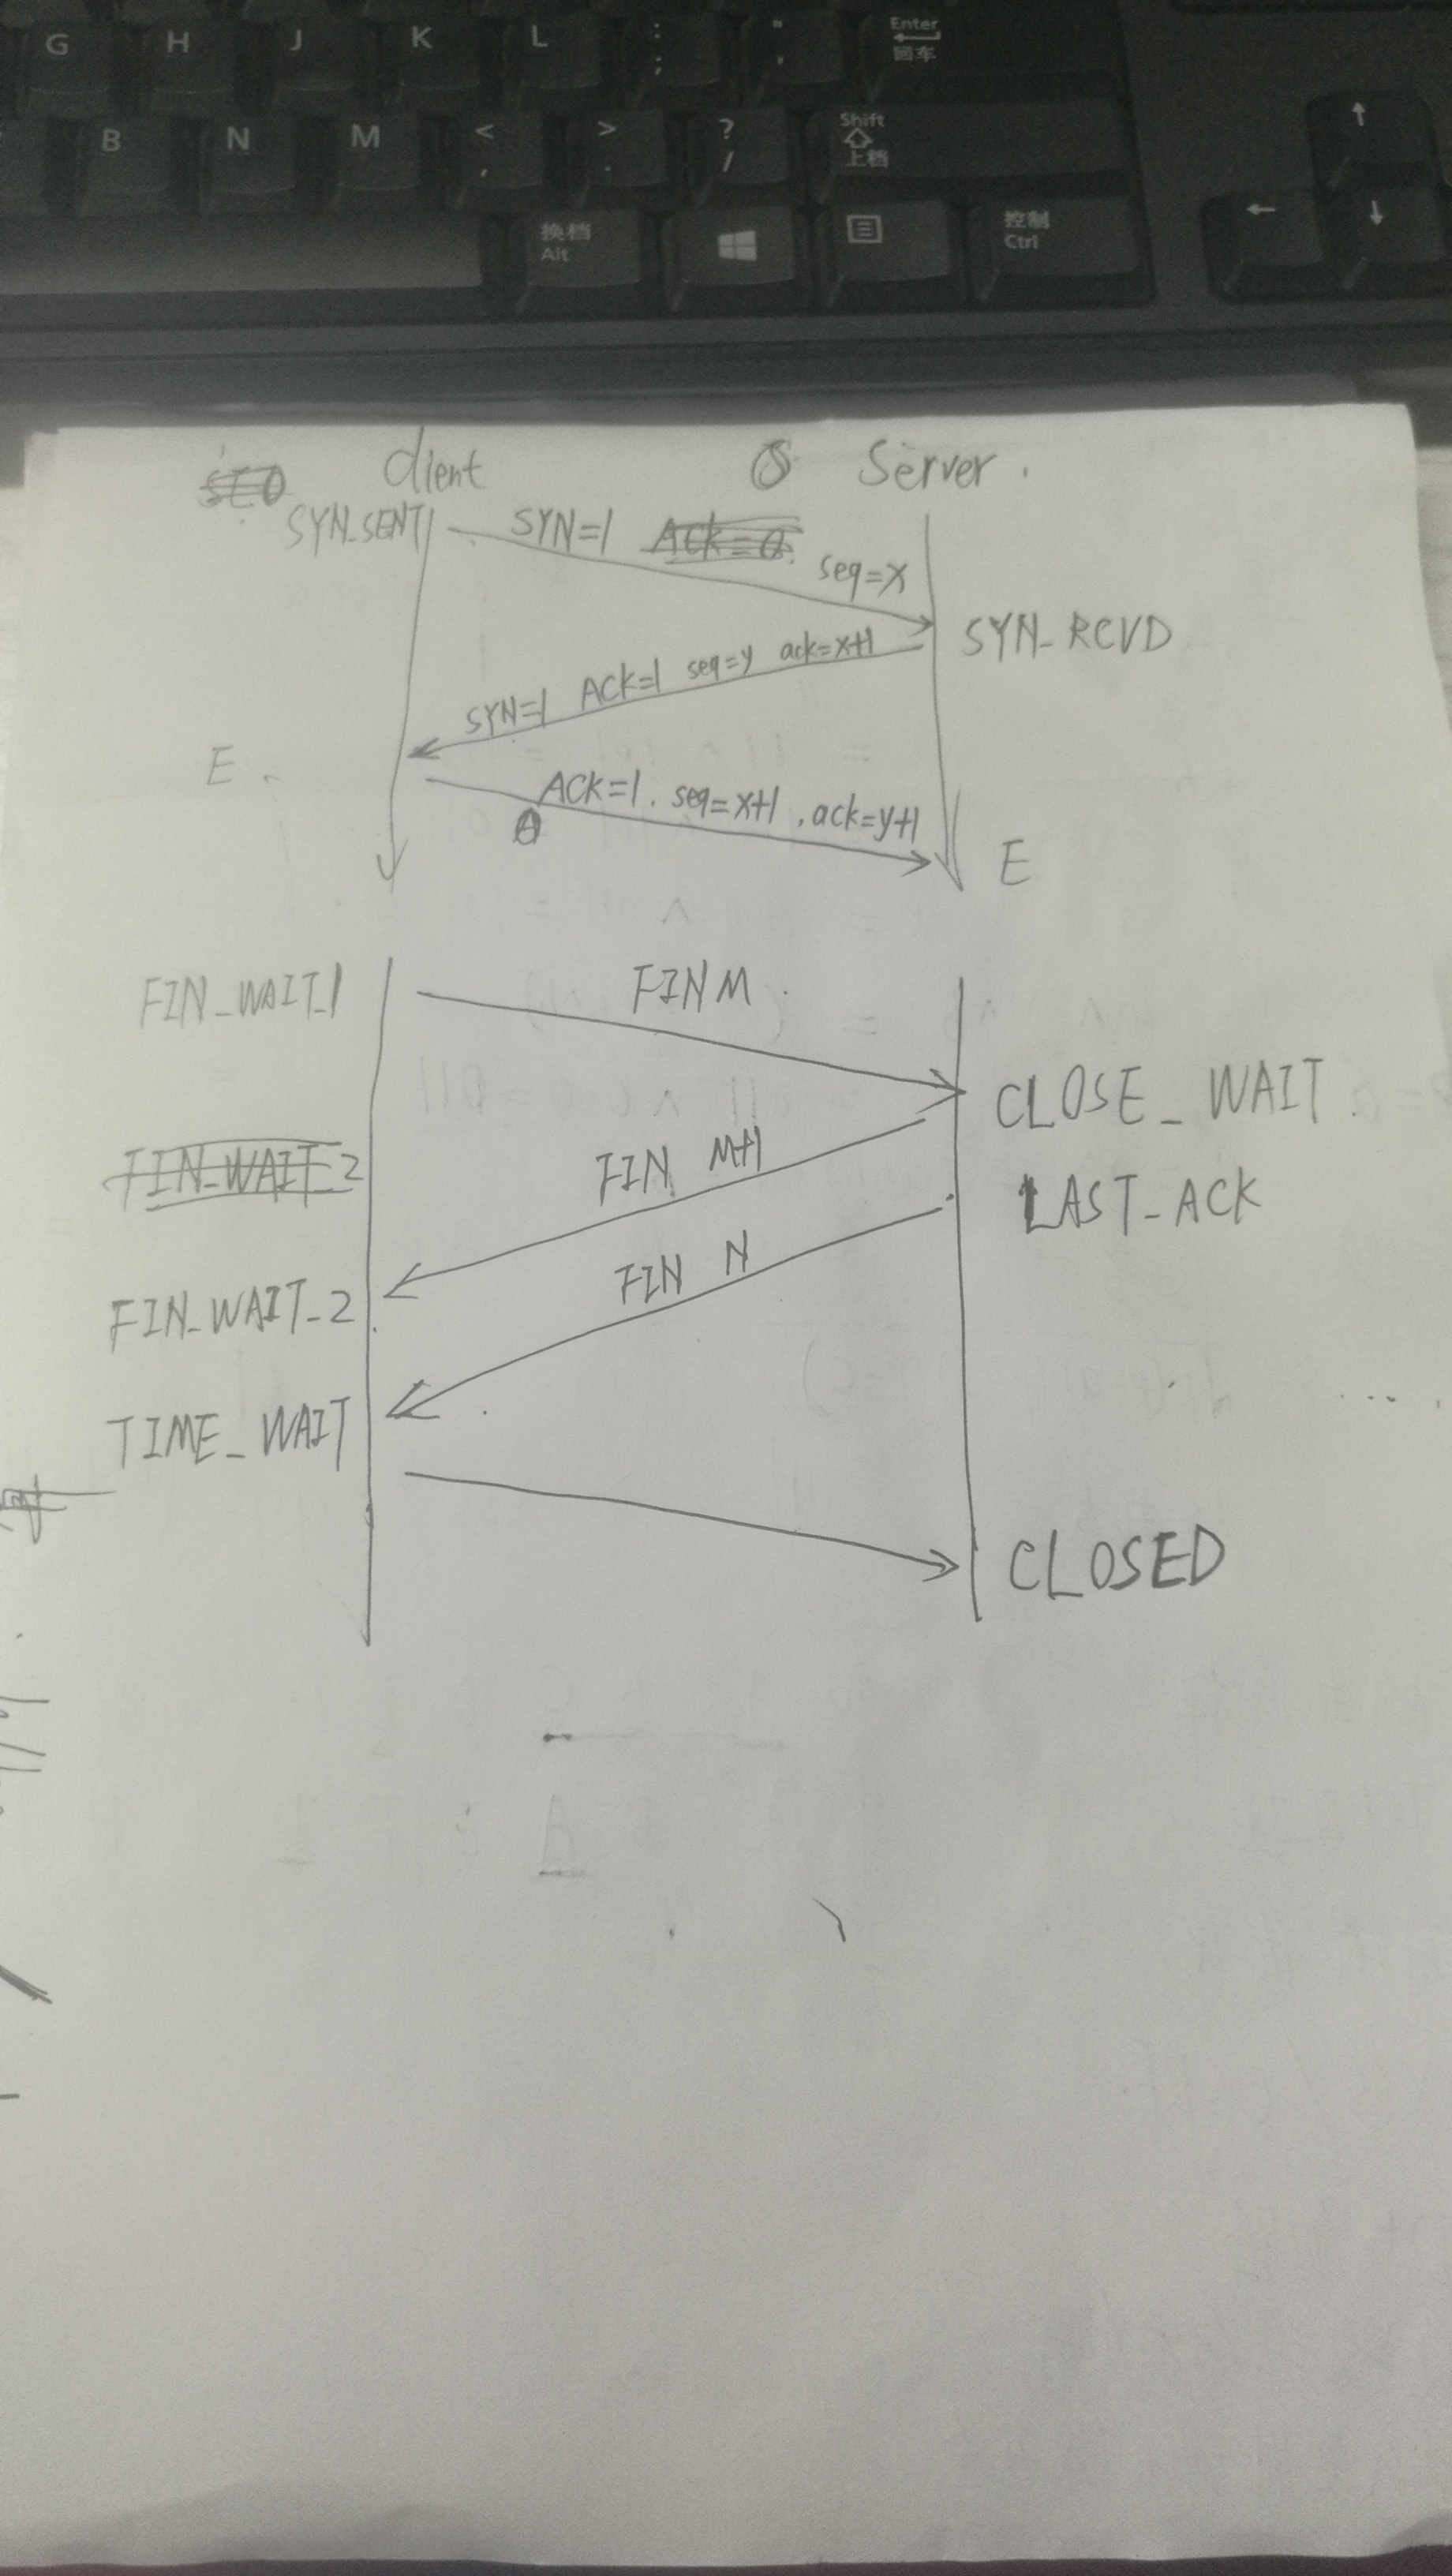 G H J K L : ; " ' Enter 回车
B N M < , > . ? / Shift 上档
换档 Alt 控制 Ctrl
Client Server.
SYN_SENT SYN=1 Ack=0 seq=x
SYN_RCVD
SYN=1 ACK=1 seq=y ack=x+1
E
ACK=1, seq=x+1, ack=y+1
E
FIN_WAIT_1 FIN M
CLOSE_WAIT
FIN M+1
FIN_WAIT_2
LAST_ACK
FIN N
FIN_WAIT_2
TIME_WAIT
CLOSED